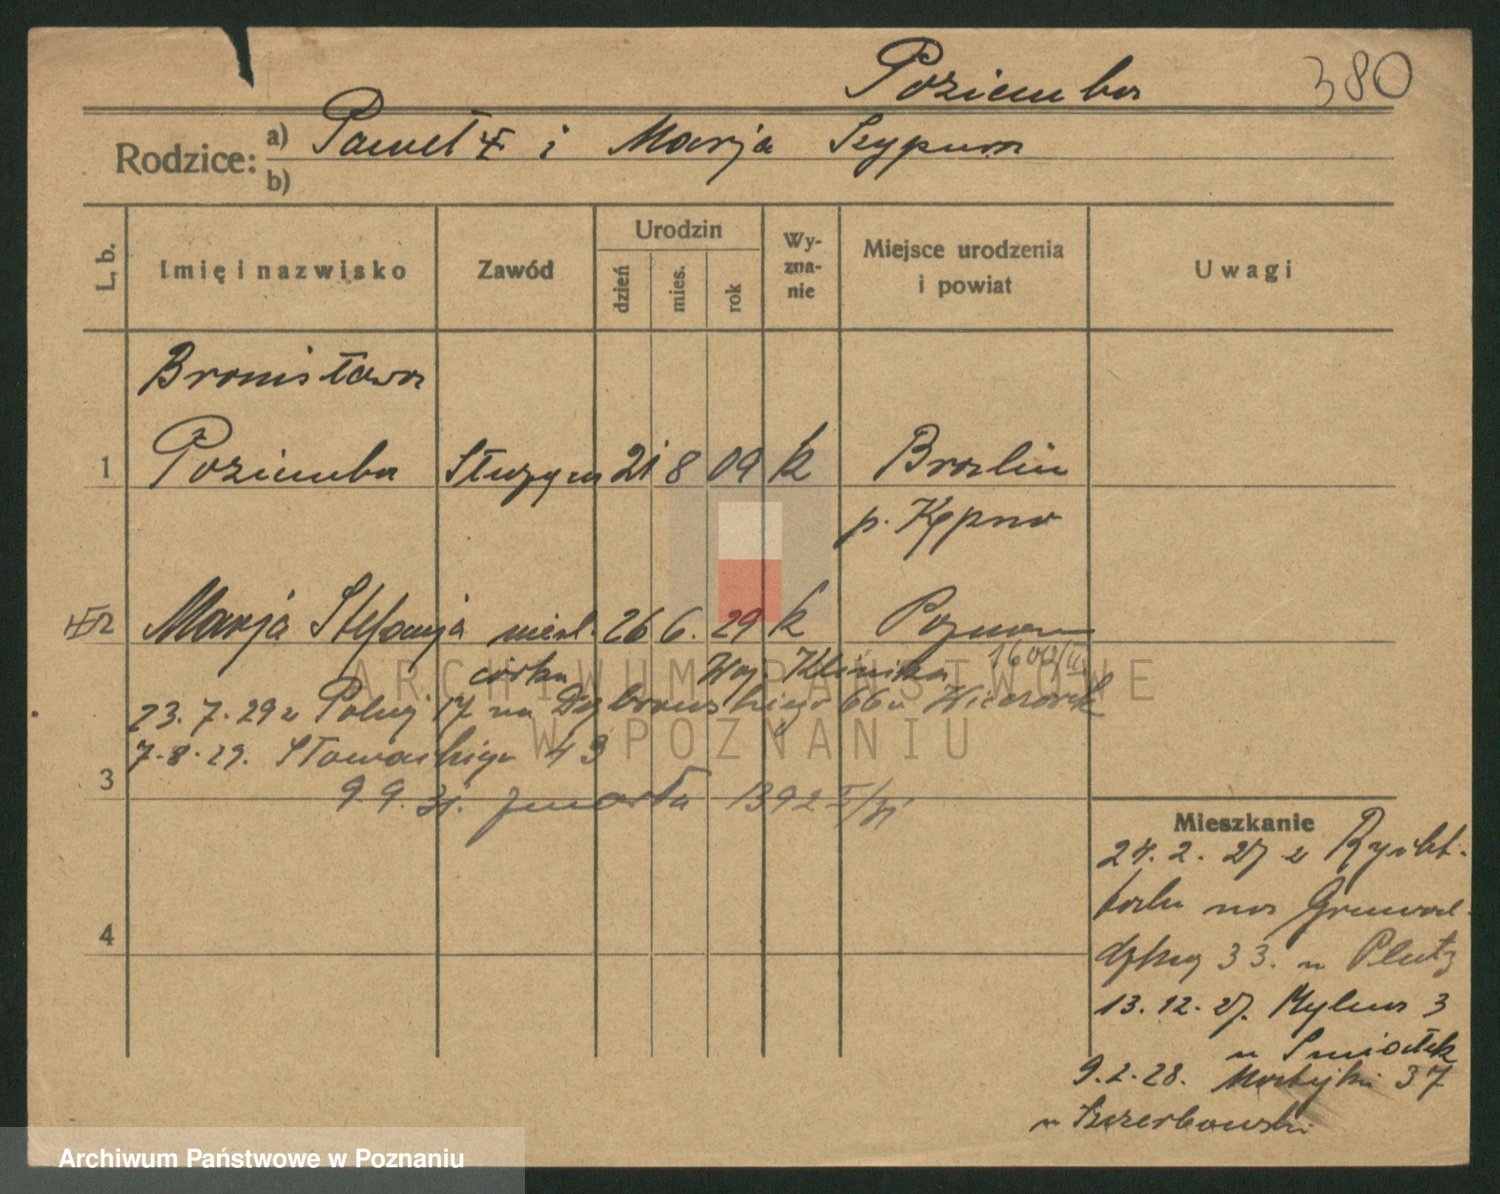 Poziemba 380
Rodzice: a) Paweł i Marja Szypura
b)
L. b. Imię i nazwisko Zawód Urodzin Wyznanie Miejsce urodzenia i powiat Uwagi
dzień mies. rok
Bronisława
1 Poziemba Służąca 21 8 09 k Bralin
p. Kępno
2 Marja Stefanja nieśl. 26 6. 29 k Poznań
córka Woj. Klinika
23.7.29 z Polnej 17 na Dąbrowskiego 66 u Wieczorek
7.8.29. Słowackiego 43
3 9.9.31. zmarła 1392
Mieszkanie
24.2.27 z Rycht-
tala na Grunwal-
4 dzką 33. u Plutz
13.12.27. Mylna 3
u Smiołek
9.2.28. Matejki 37
u Szczerkowski
ARCHIWUM PAŃSTWOWE
W POZNANIU
Archiwum Państwowe w Poznaniu